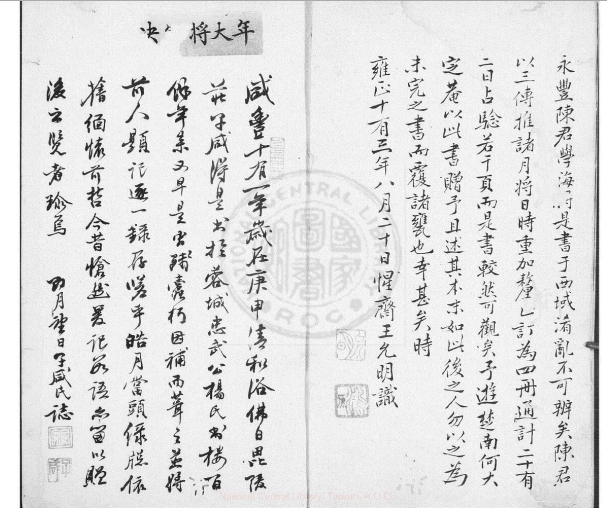 永豐陳君學海得是書于西域淆亂不可辨矣陳君
以三傳推諸月將日時重加釐乙訂為四冊通計二十有
二日占驗若干頁而是書較然可觀矣予遊楚南何大
定菴以此書贈予且述其本末如此後之人勿以之為
未完之書而覆諸甕也幸甚矣時
雍正十有三年八月二十日惺齋王允明識
年大將
咸豐十有一年歲在庚申清和浴佛日毘陵
莊子咸得是書於蓉城忠武公楊氏書樓百
餘年來又早是蟲殘蠹朽因補而葺之並將
前人題記逐一錄存嗟乎皓月當頭綠依
檐緬懷前哲今昔愴然爰記數語亦留以貽
後云覽者珍焉
四月望日子咸氏誌
NATIONAL CENTRAL LIBRARY
R.O.C.
National Central Library, Taiwan, R.O.C.